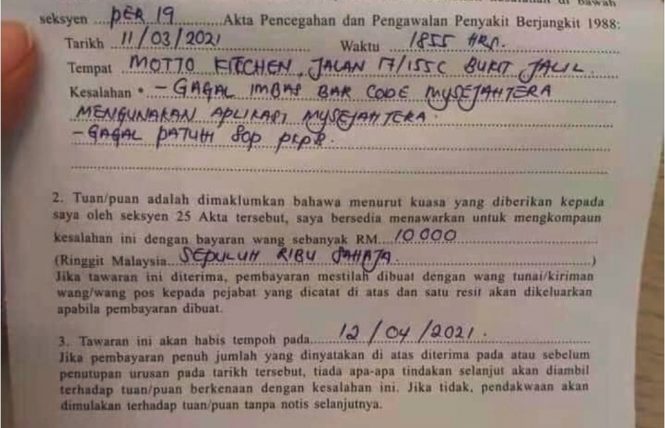 seksyen PER 19 Akta Pencegahan dan Pengawalan Penyakit Berjangkit 1988:
Tarikh 11/03/2021 Waktu 1855 HRS.
Tempat MOTTO KITCHEN, JALAN 17/155C BUKIT JALIL.
Kesalahan * - GAGAL IMBAS BAR CODE MYSEJAHTERA
MENGUNAKAN APLIKASI MYSEJAHTERA.
- GAGAL PATUH SOP PKPB.
2. Tuan/puan adalah dimaklumkan bahawa menurut kuasa yang diberikan kepada
saya oleh seksyen 25 Akta tersebut, saya bersedia menawarkan untuk mengkompaun
kesalahan ini dengan bayaran wang sebanyak RM 10 000
(Ringgit Malaysia SEPULUH RIBU SAHAJA )
Jika tawaran ini diterima, pembayaran mestilah dibuat dengan wang tunai/kiriman
wang/wang pos kepada pejabat yang dicatat di atas dan satu resit akan dikeluarkan
apabila pembayaran dibuat.
3. Tawaran ini akan habis tempoh pada 12/04/2021.
Jika pembayaran penuh jumlah yang dinyatakan di atas diterima pada atau sebelum
penutupan urusan pada tarikh tersebut, tiada apa-apa tindakan selanjut akan diambil
terhadap tuan/puan berkenaan dengan kesalahan ini. Jika tidak, pendakwaan akan
dimulakan terhadap tuan/puan tanpa notis selanjutnya.